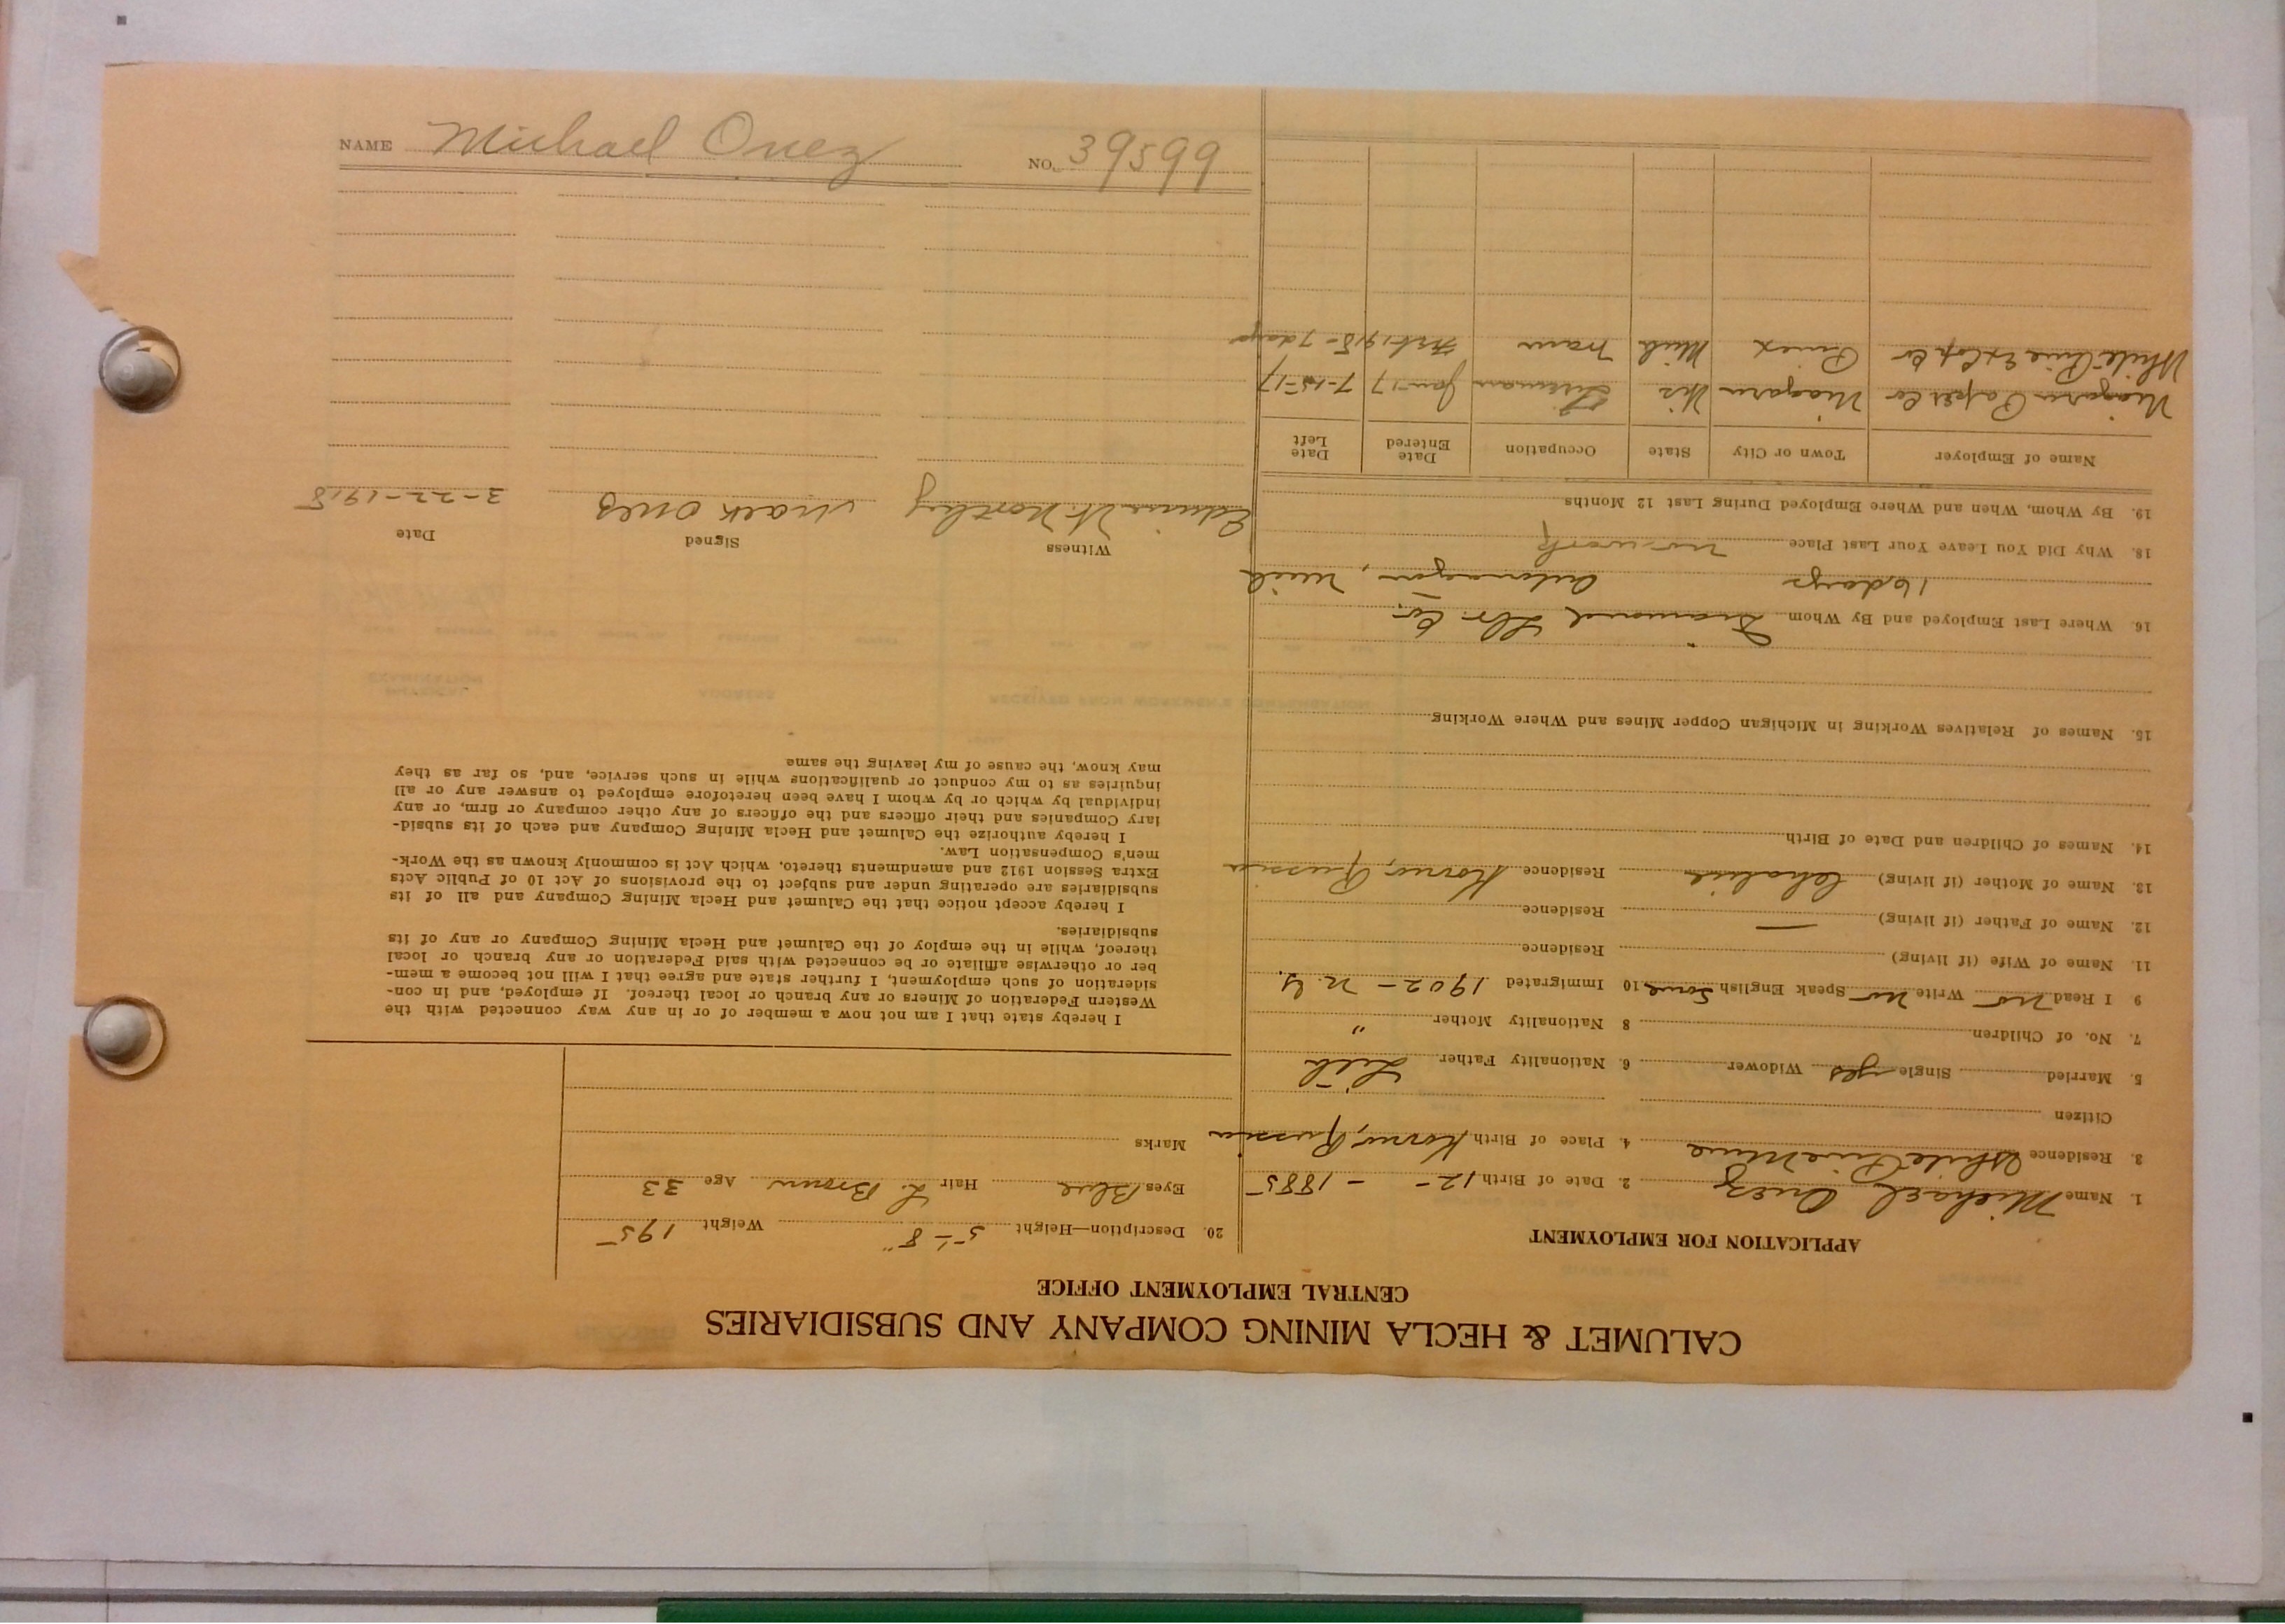 CALUMET & HECLA MINING COMPANY AND SUBSIDIARIES
CENTRAL EMPLOYMENT OFFICE
APPLICATION FOR EMPLOYMENT
1. Name Michael Onez 2. Date of Birth 12 - - 1885
3. Residence White Pine Mine 4. Place of Birth Kovno, Russia
Citizen
5. Married Single yes Widower 6. Nationality Father Lith
7. No. of Children 8 Nationality Mother "
9 I Read no Write no Speak English some 10 Immigrated 1902 - N.Y.
11. Name of Wife (if living) Residence
12. Name of Father (if living) — Residence
13. Name of Mother (if living) Residence Kovno, Russia
14. Names of Children and Date of Birth
15. Names of Relatives Working in Michigan Copper Mines and Where Working
16. Where Last Employed and By Whom Diamond Lbr. Co.
16 days Ontonagon, Mich
18. Why Did You Leave Your Last Place no work
19. By Whom, When and Where Employed During Last 12 Months
Name of Employer Town or City State Occupation Date Entered Date Left
Niagara Paper Co Niagara Wis Jan-17 7-15-17
White Pine Ex Cop Co Mich Tram 1918 - 7 days
20. Description—Height 5'-8" Weight 195
Eyes Blue Hair L. Brown Age 33
Marks
I hereby state that I am not now a member of or in any way connected with the
Western Federation of Miners or any branch or local thereof. If employed, and in con-
sideration of such employment, I further state and agree that I will not become a mem-
ber or otherwise affiliate or be connected with said Federation or any branch or local
thereof, while in the employ of the Calumet and Hecla Mining Company or any of its
subsidiaries.
I hereby accept notice that the Calumet and Hecla Mining Company and all of its
subsidiaries are operating under and subject to the provisions of Act 10 of Public Acts
Extra Session 1912 and amendments thereto, which Act is commonly known as the Work-
men's Compensation Law.
I hereby authorize the Calumet and Hecla Mining Company and each of its subsid-
iary Companies and their officers and the officers of any other company or firm, or any
individual by which or by whom I have been heretofore employed to answer any or all
inquiries as to my conduct or qualifications while in such service, and, so far as they
may know, the cause of my leaving the same
Witness Signed Date
Onez 3-22-1918
NAME Michael Onez NO. 39599